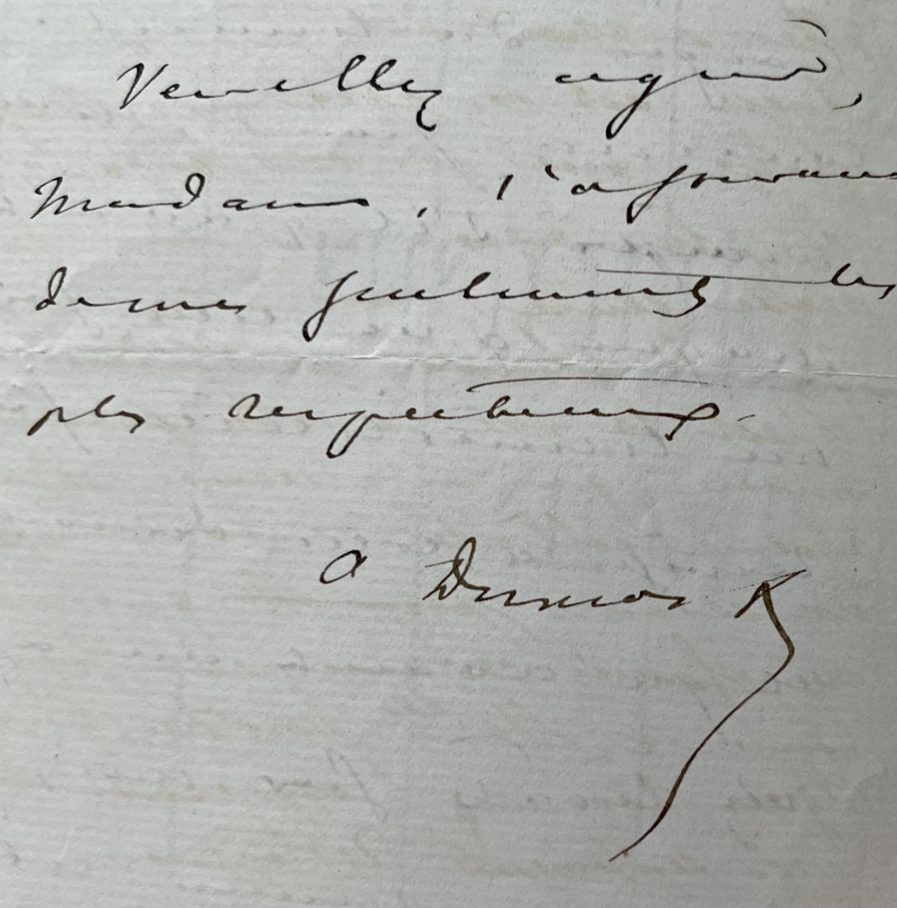 Veuillez agréer,
Madame, l'assurance
de mes sentiments les
plus respectueux.
A Dumas f